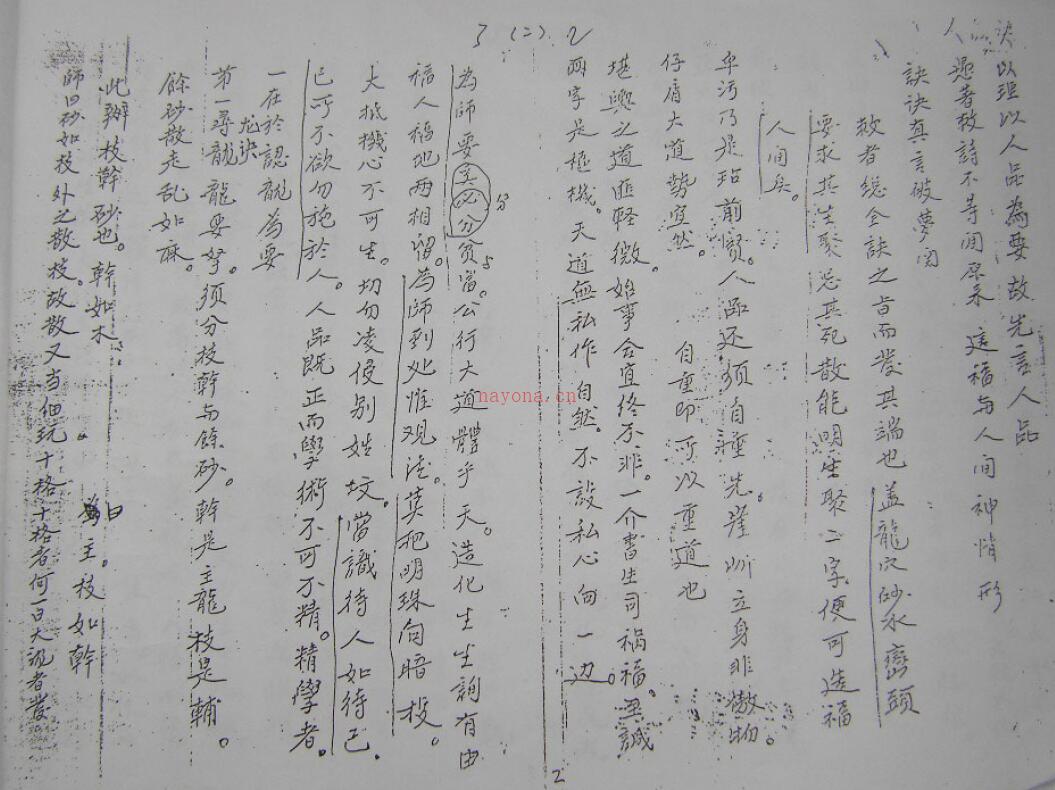 3 (二) 2
以理以人品為要故先言人品
人愚者敎詩不等闲原来造福与人间神情形
訣訣真言破夢闲
敎者總全訣之旨而发其端也盖龍穴砂水巒頭
要求其生聚忌其死散能明生聚二字便可造福
人间矣。
卑污乃是玷前贤。人品还须自种先。崖川立身非傲物。
仔肩大道势宜然。 自重即可以重道也
堪輿之道匪轻微。始事合宜终不非。一介書生司祸福。至誠
两字是極機。天道無私作自然。不設私心向一边。
2
為師要必分贫富。公行大道體乎天。造化生生詢有由
分
福人福地两相留。為師到处惟观法。莫把明珠向暗投。
大抵機心不可生。切勿凌侵别姓坟。當識待人如待己
已可不欲勿施於人。人品既正而學術不可不精。精學者。
一在於認龍為要
龙訣
第一尋龍龍要孥。须分枝幹与餘砂。幹是主龍枝是輔。
餘砂散走乱如麻。
此辦枝幹砂也。幹如木 為主。枝如幹
曰
師曰砂如枝外之散枝。故散又当细玩十格十格者何一曰大説者发
nayona.cn